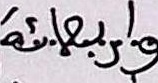 وأربعمائة